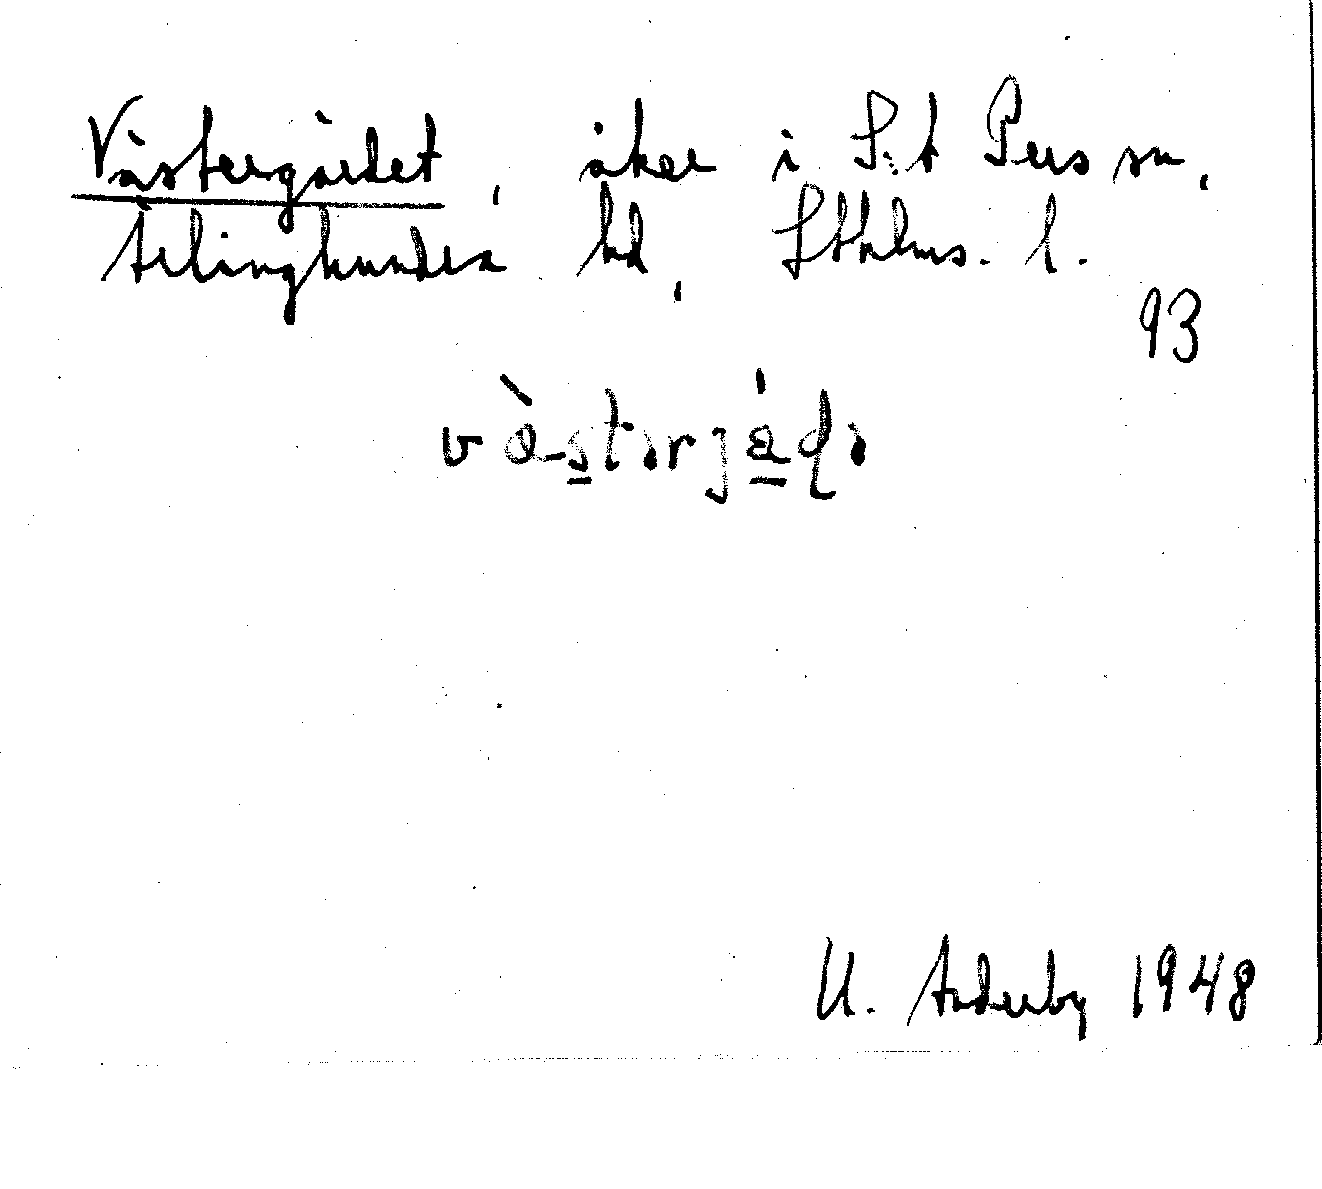 Västergärdet, åker i S:t Pers sn,
Ärlinghundra hd, Sthlms. l.
93
U. Anderby 1948